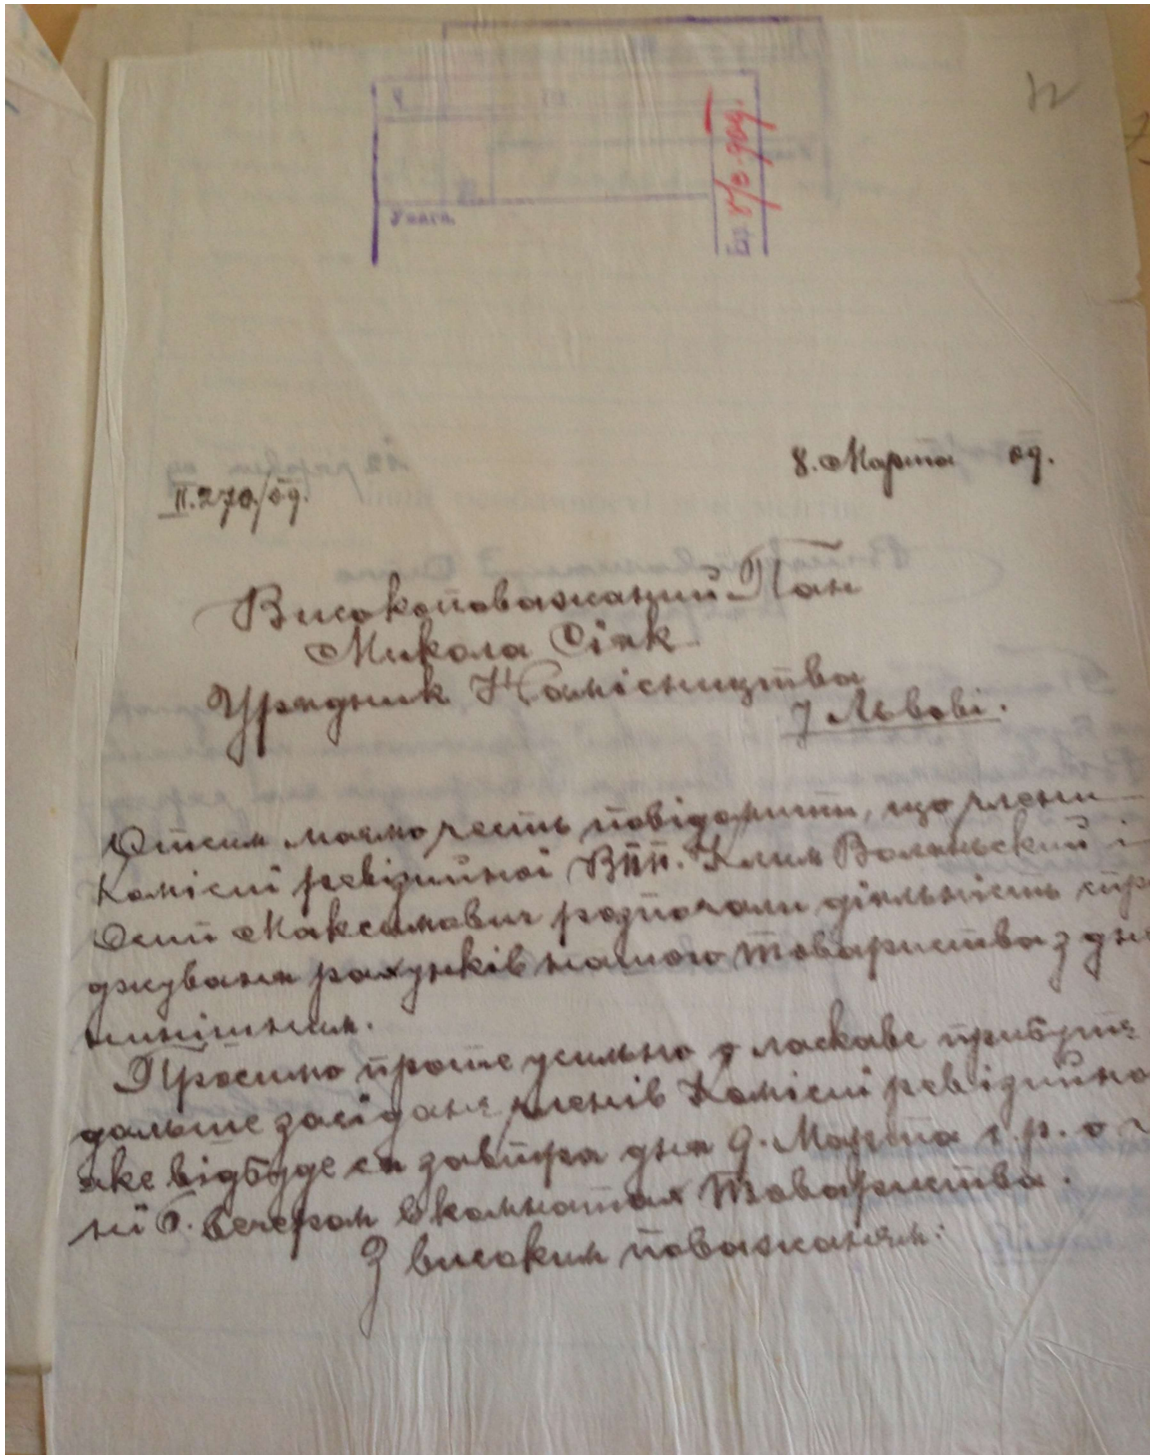 12
Ч.
Увага.
Бр. 8/3. 909.
8. Марта 09.
II.270/09.
Високоповажаний Пан
Микола Сіяк
Урядник Намісництва
у Львові.
Отсим маємо честь повідомити, що члени
Комісиї ревізийної Впп. Клим Волянський і
Осип Максимович розпочали діяльність спр
джуваня рахунків нашого товариства з дне
нинішним.
Просимо проте усильно о ласкаве прибутє
дальше засіданє членів Комісиї ревізийно
яке відбуде ся завтра дня 9. Марта с. р. о г
ні 6. вечером в комнатах товариства.
З високим поважанєм: